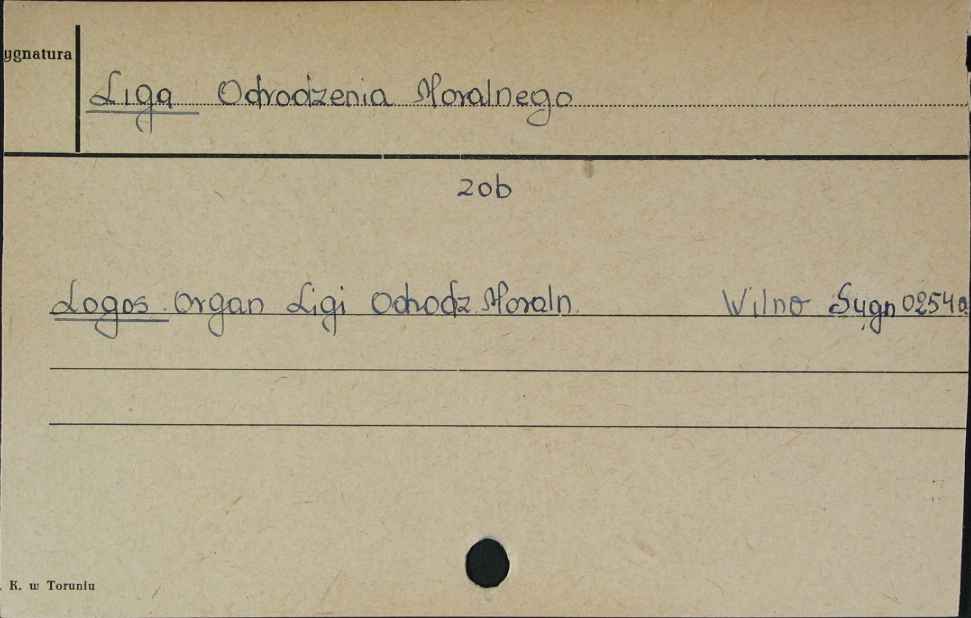 ygnatura
Liga Odrodzenia Moralnego
zob
Logos. Organ Ligi Odrodz. Moraln. Wilno Sygn 02540
. K. w Toruniu